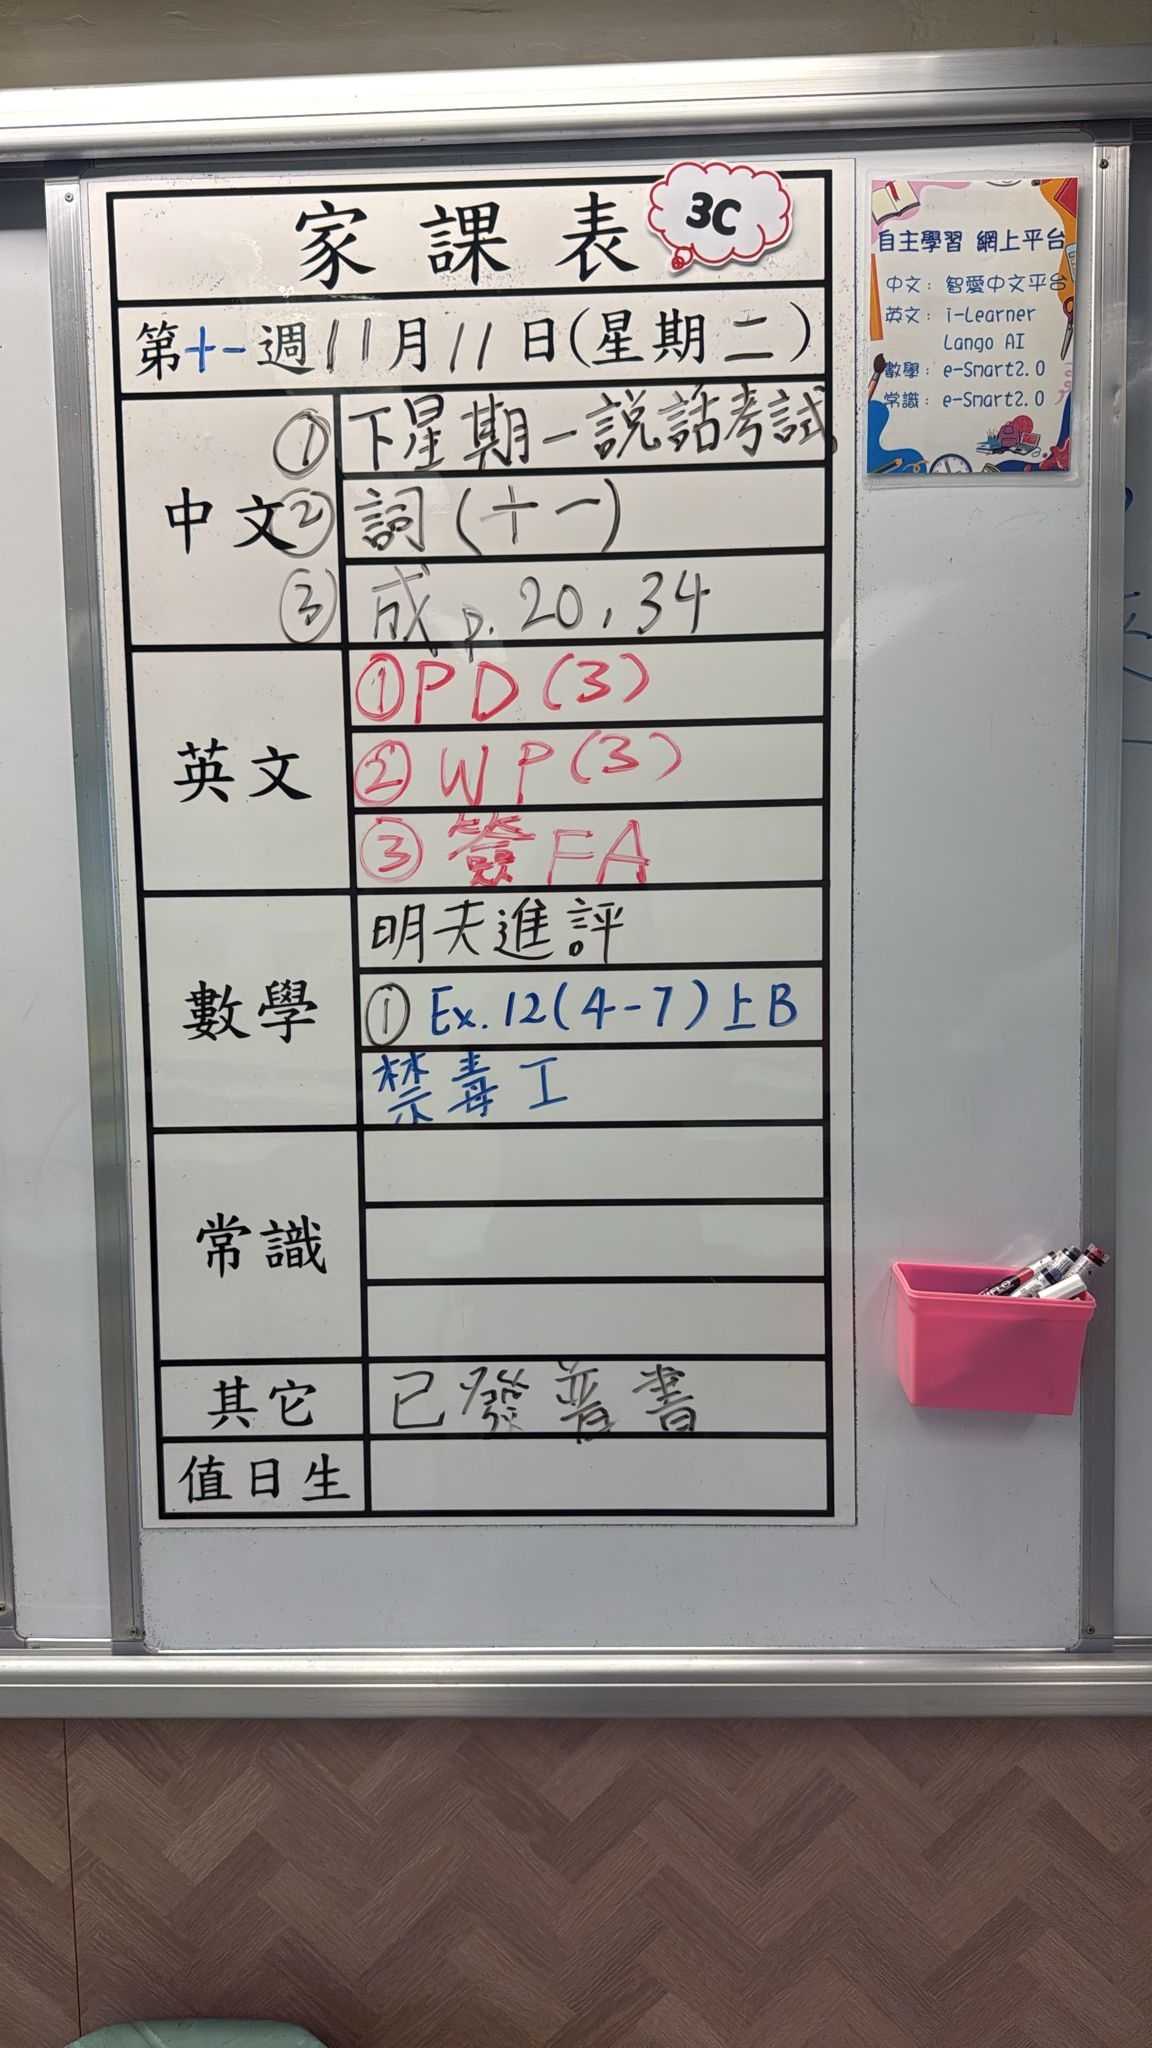 家課表 3C
第十一週 11月11日(星期二)
中文
① 下星期一說話考試。
② 詞(十一)
③ 成 p. 20, 34
英文
① PD (3)
② WP (3)
③ 簽 FA
數學
明天進評
① Ex. 12 (4-7) 上B
禁毒工
常識
其它
已發普書
值日生
自主學習 網上平台
中文: 智愛中文平台
英文: i-Learner
Lango AI
數學: e-Smart2.0
常識: e-Smart2.0